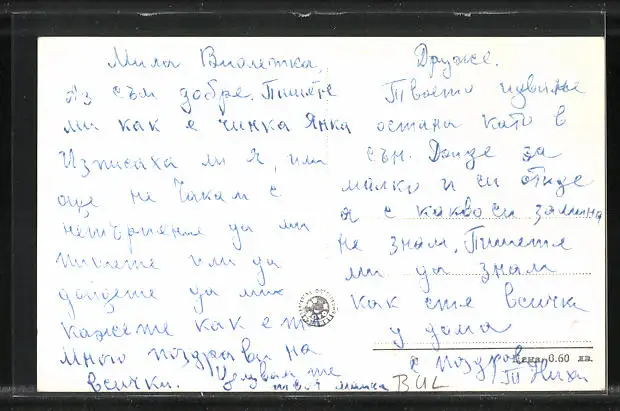 Мила Виолетка,
Аз съм добре. Пишете
ми как е чинка Янка
Изписаха ли я, или
още не Чакам с
нетърпение да ми
пишете или да
дойдете да ми
кажете как е тя
Много поздрави на
всички. Целувам те
твоя майка
Друже.
Твоето идване
остана като в
сън. Дойде за
малко и си отиде
а с какво си замина
не знам. Пишете
ми да знам
как сте всички
у дома
с поздрав
Цена 0.60 лв.
BUL